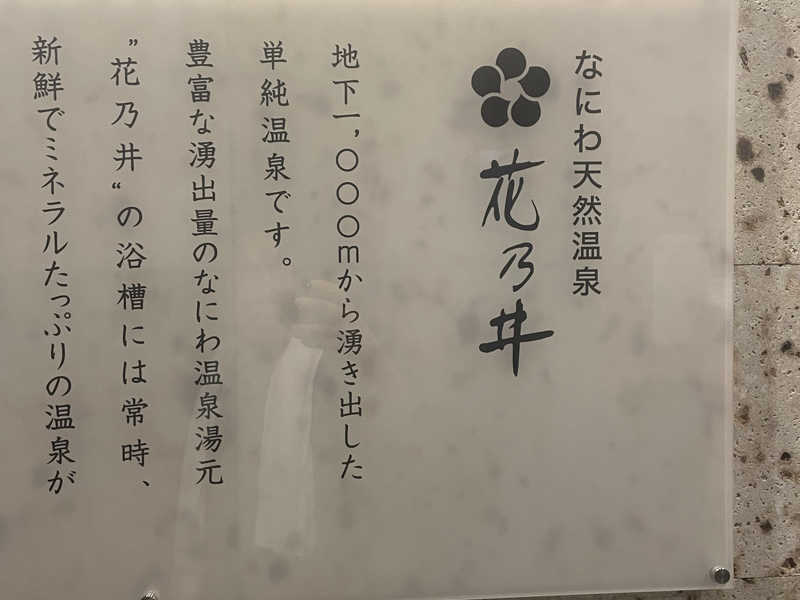 なにわ天然温泉
花乃井
地下一,〇〇〇mから湧き出した
単純温泉です。
豊富な湧出量のなにわ温泉湯元
”花乃井“の浴槽には常時、
新鮮でミネラルたっぷりの温泉が